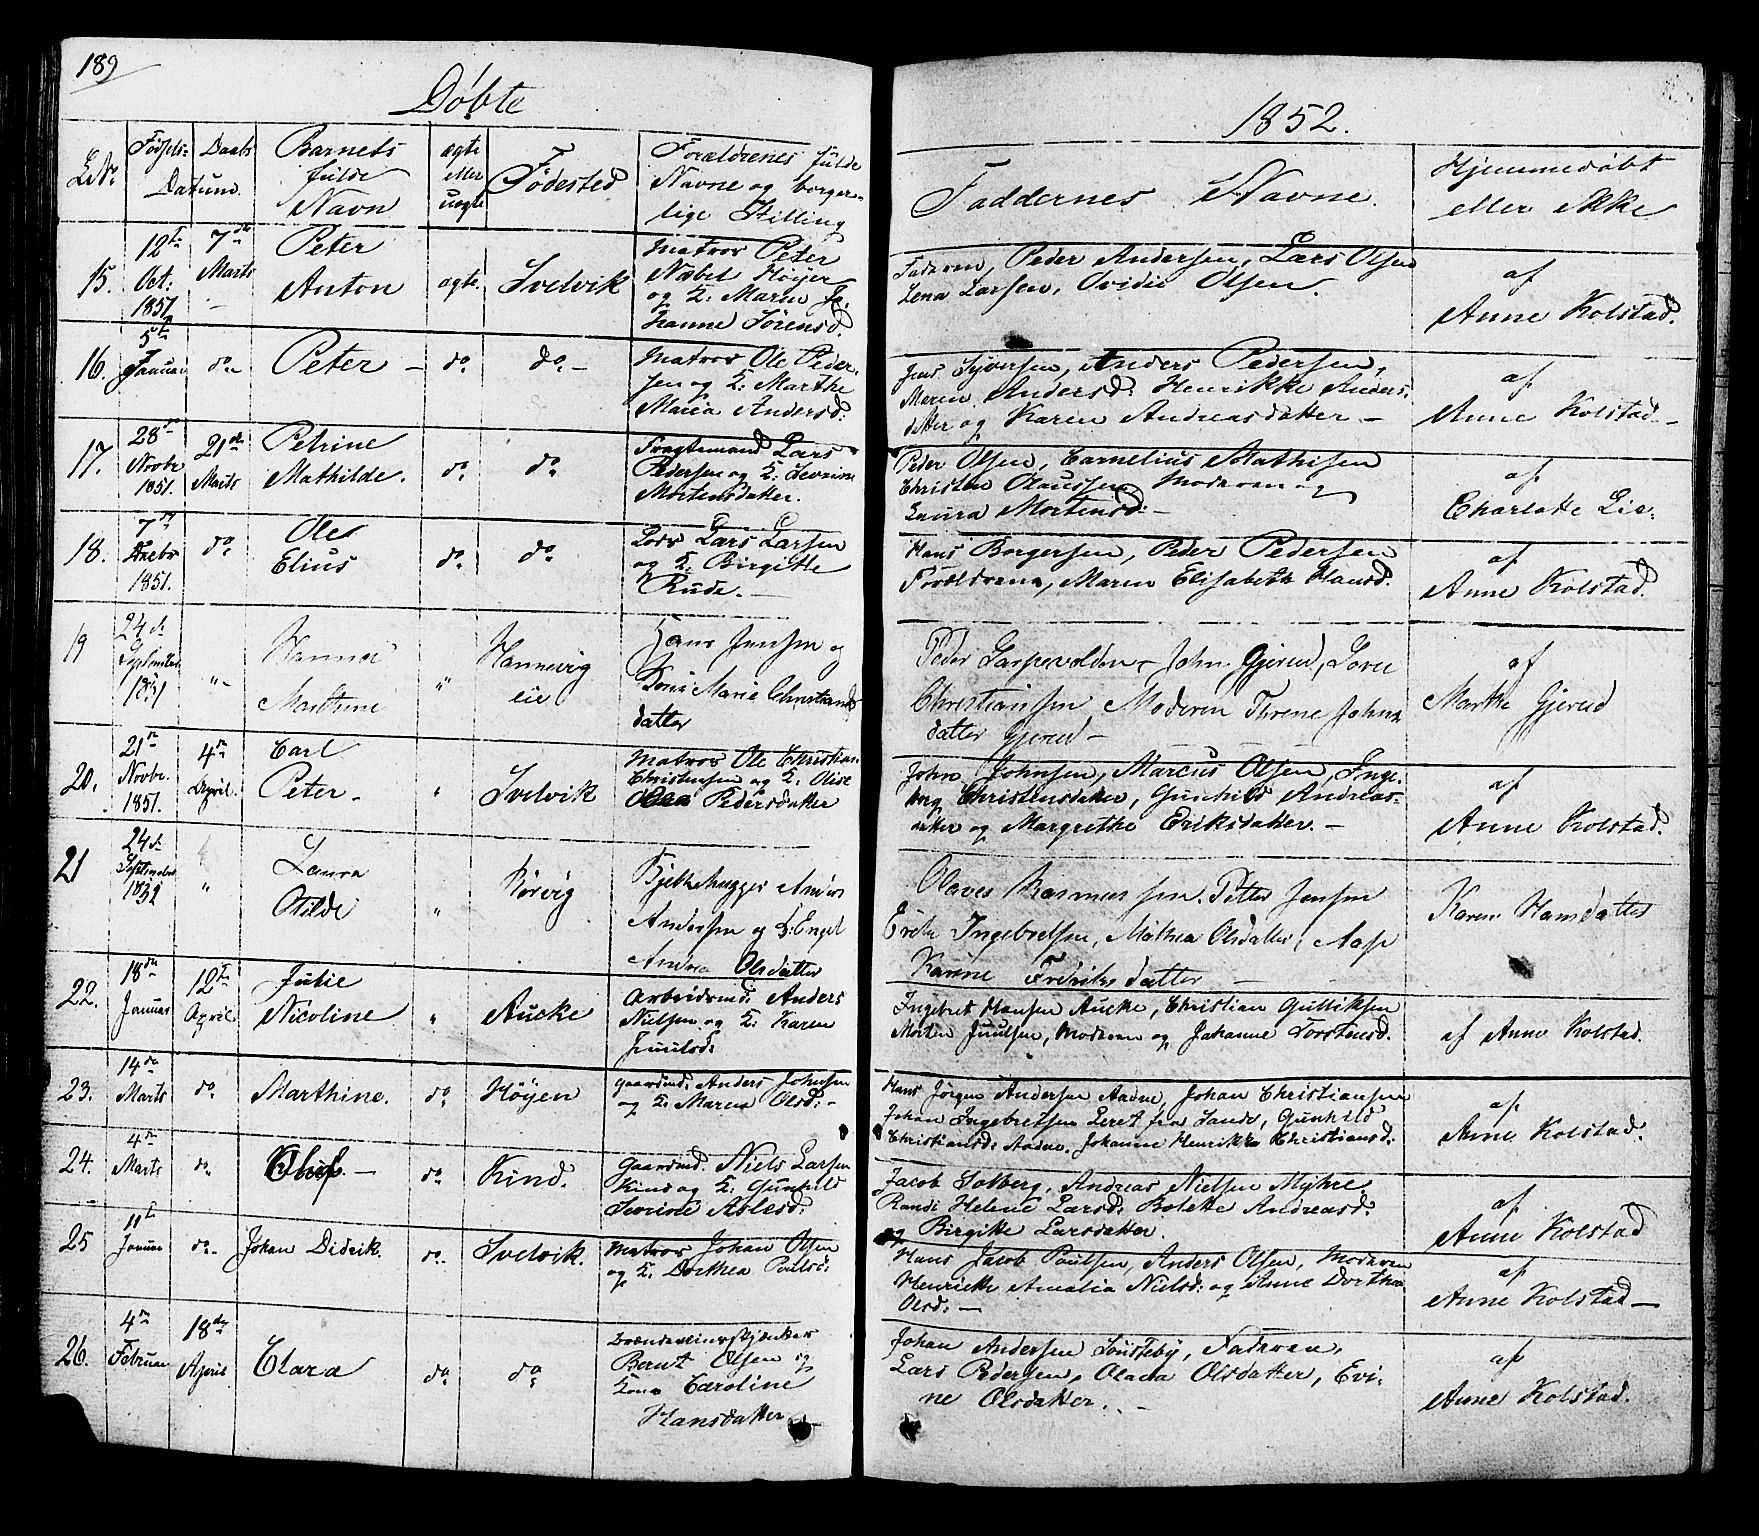 189
Döbte
1852.
LNo.
Födsels-
Daabs
Datum.
Barnets
fulde
Navn
ægte
eller
uægte
Födested
Forældrenes fulde
Navne og borger-
lige Stilling
Faddernes Navne.
Hjemmedöbt
eller ikke
15.
12te
Oct:
1851
7de
Marts
Peter
Anton
ægte.
Svelvik
Matros Peter
Næbel Höyer
og K: Maren Jo-
hanne Sörensd.
Faderen, Peder Andersen, Lars Olsen
Lena Larsen, Ovidie Olsen.
af
Anne Kolstad.
16.
5te
Januar
do
Peter –
do
do –
Matros Ole Peder-
sen og K: Marthe
Maria Andersd:
Jens Syversen, Anders Pedersen,
Maren Andersd: Henrikke Anders-
datter og Karen Andreasdatter –
af
Anne Kolstad –
17.
28de
Novbr
1851.
21de
Marts
Petrine
Mathilde.
do
do
Fragtemand Lars
Pedersen og K: Severine
Mortensdatter.
Peder Olsen, Carnelius Mathisen
Christen Olaussen, Moderen og
Laura Mortensd: –
af
Charlotte Lie:
18.
7de
Decbr
1851.
do
Ole
Elius
do
do
Lods Lars Larsen
og K: Birgitte
Rude. –
Hans Borgersen, Peder Pedersen
Forældrene, Maren Elisabeth Hansd:
af
Anne Kolstad.
19
24de
September
1851
"
Hanna
Marthine
"
Hannevig
eie
Hans Jensen og
Kone Marie Christians
datter
Peder – John Gjerud, Lovise
Christiansen Moderen Thrine Johns
datter Gjerud –
af
Marthe Gjerud
20.
21de
Novbr.
1851.
4de
April
Carl
Peter –
"
Svelvik
Matros Ole Christian
Christensen og K: Olise
Pedersdatter
Johan Johnsen, Marcus Olsen, Inge-
borg Christensdatter, Gunhild Andreas-
datter og Margrethe Eriksdatter. –
af
Anne Kolstad.
21
24de
September
"
Laura
Otilde
"
Rörvig
Bjelkehugger Anders
Andersen og K: Engel
Andrea Olsdatter
Olaves Rasmussen. Petter Jensen
Ingebretsen, Mathea Olsdatter, Aase
Karine Fredriksdatter –
Karen Hansdatter
22.
18de
Januar
12te
April
Julie
Nicoline
"
Aucke
Arbeidsmd: Anders
Nielsen og K: Karen
Juulsd:
Ingebret Hansen Aucke, Christian Gulliksen
Morten Juulsen, Moderen og Johanne Torstensd.
af Anne Kolstad.
23.
14de
Marts
do
Marthine.
do
Höyen
Gaardmd: Anders Johnsen
og K: Maren Olsd: –
Hans Jörgen Andersen Aadne, Johan Christiansen
Johan Ingebretsen Leret fra Sande, Gunhild
Christiansd: Aadne. Johanne Henrikke Christiansd:
af
Anne Kolstad.
24.
4de
Marts
do
Oluf –
do
Kind.
Gaardmd. Niels Larsen
Kind og K: Gunhild
Severine Aslesd:
Jacob Solberg, Andreas Nielsen Myhre
Randi Helene Larsd: Bolette Andreasd.
og Birgitte Larsdatter.
af
Anne Kolstad
25
11te
Januar
do –
Johan Didrik.
do.
Svelvik.
Matros Johan Olsen
og K: Dorthea Poulsd:
Hans Jacob Paulsen, Anders Olsen, Moderen
Henriette Amalia Nielsd: og Anne Dorthea
Olsd: –
af
Anne Kolstad –
26.
4de
Februar
18de
April
Clara
do
do
Brændevinsskjænker
Bernt Olsen og
Kone Caroline
Hansdatter
Johan Andersen Tousteby, Faderen,
Lars Pedersen, Olava Olsdatter, Evi-
ne Olsdatter. –
af
Anne Kolstad.